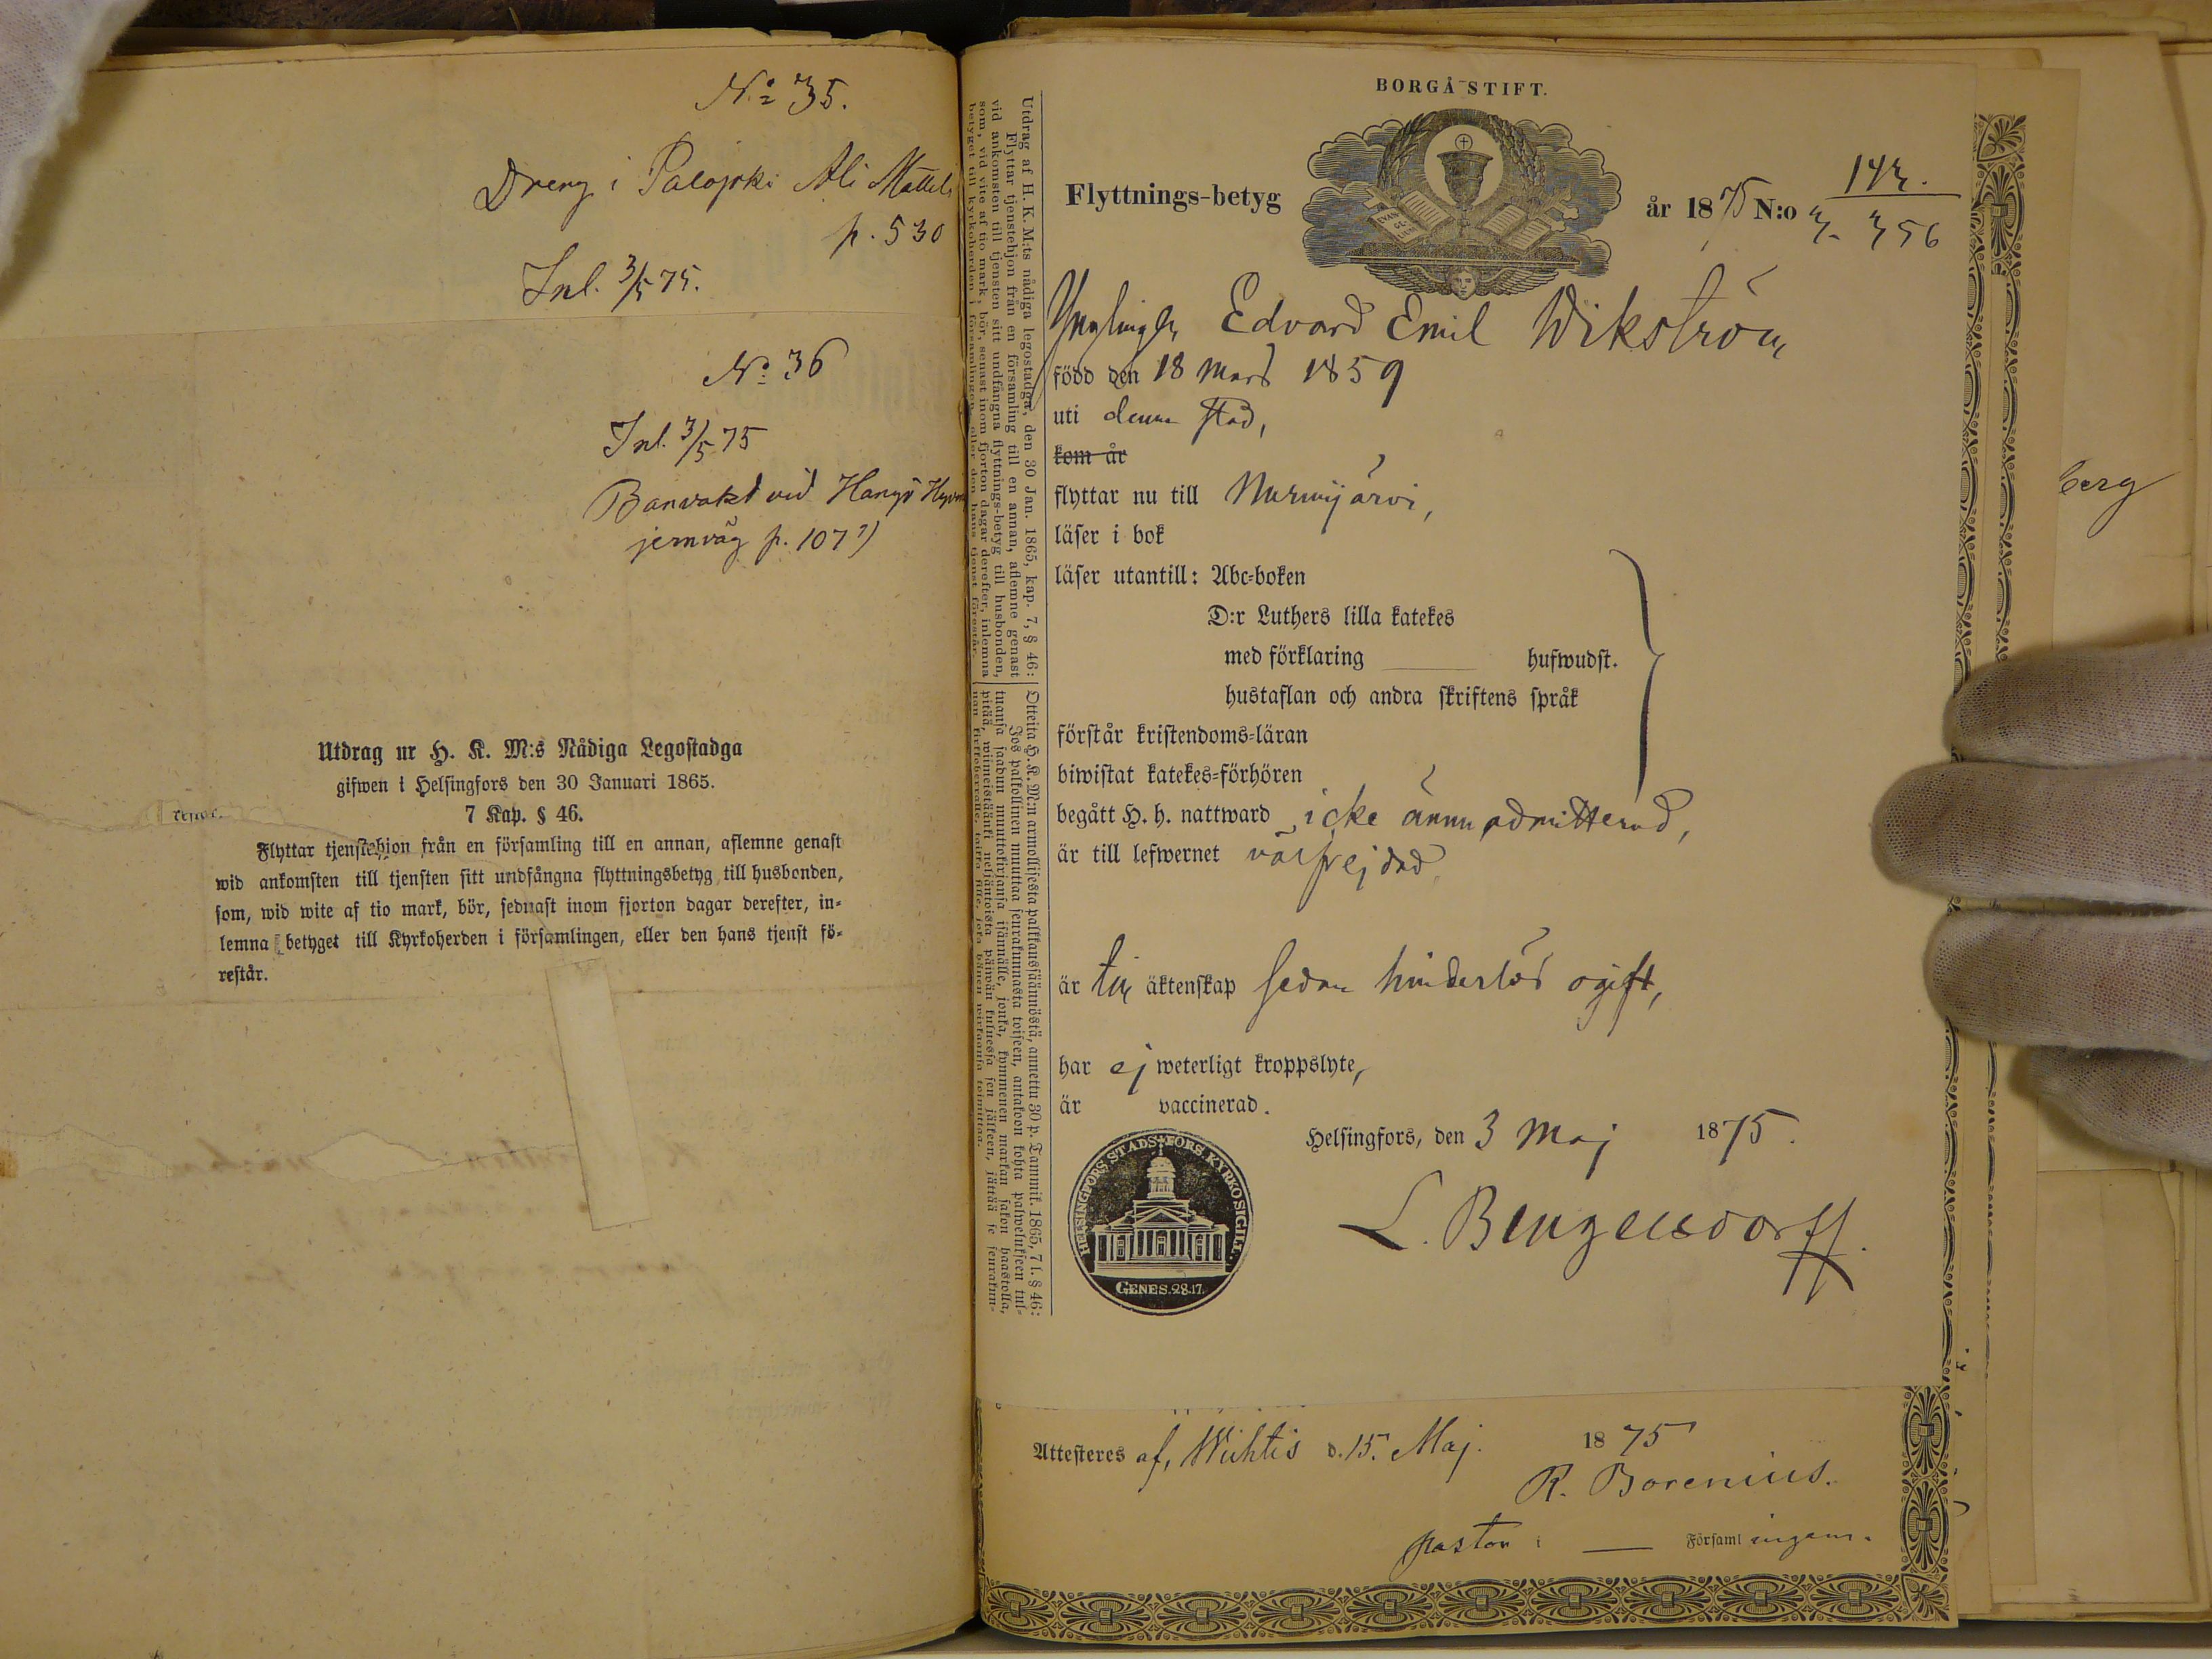 No 35.
Dreng i Palojoki Ali Mattila
p. 530
Inl. 3/5 75.
No 36
Inl. 3/5 75
Banvakt vid Hangö Hyvin
jernväg p. 107
Utdrag ur H. K. M:s Nådiga Legostadga
gifwen i Helsingfors den 30 Januari 1865.
7 Kap. § 46.
Flyttar tjenstehjon från en församling till en annan, aflemne genast
wid ankomsten till tjensten sitt undfångna flyttningsbetyg till husbonden,
som, wid wite af tio mark, bör, sednast inom fjorton dagar derefter, in-
lemna betyget till Kyrkoherden i församlingen, eller den hans tjenst fö-
restår.
Utdrag af H. K. M:ts nådiga legostadga, den 30 Jan. 1865, kap. 7, § 46:
Flyttar tjenstehjon från en församling till en annan, aflemne genast
vid ankomsten till tjensten sitt undfångna flyttnings-betyg till husbonden,
som, vid vite af tio mark, bör, senast inom fjorton dagar derefter, inlemna
betyget till kyrkoherden i församlingen eller den hans tjenst förestår.
Otteita H. K. M:n armollisesta palkkaussäännöstä, annettu 30 p. Tammik. 1865, 7 l. § 46:
Jos palkollinen muuttaa seurakunnasta toiseen, antakoon kohta palwelukseen tul-
tuansa saadun muuttokirjansa isännälle, jonka, kymmenen markan sakon haastolla,
pitää, wiimeistänki neljäntoista päiwän kuluessa sen jälkeen, jättää se seurakun-
nan kirkkoherralle, taikka sille, joka hänen wirkaansa toimittaa.
BORGÅ STIFT.
Flyttnings-betyg
år 1875 N:o
143.
756
EVAN-
GE-
LIUM
Ynglingen Edvard Emil Wikström
född den 18 Mars 1859
uti denna stad,
kom år
flyttar nu till Nurmijärvi,
läser i bok
läser utantill: Abc-boken
D:r Luthers lilla katekes
med förklaring hufwudst.
hustaflan och andra skriftens språk
förstår kristendoms-läran
biwistat katekes-förhören
begått H. h. nattward icke ännu admitterad,
är till lefwernet välfrejdad
är till äktenskap ledig hinderlös ogift,
har ej weterligt kroppslyte,
är vaccinerad.
Helsingfors, den 3 Maj 1875.
L. Bengelsdorff.
HELSINGFORS STADS FÖRS. KYRKO SIGILL.
GENES. 28.17.
Attesteres af, Wichtis d. 15. Maj. 1875
R. Borenius.
pastor i — Församlingen.
berg